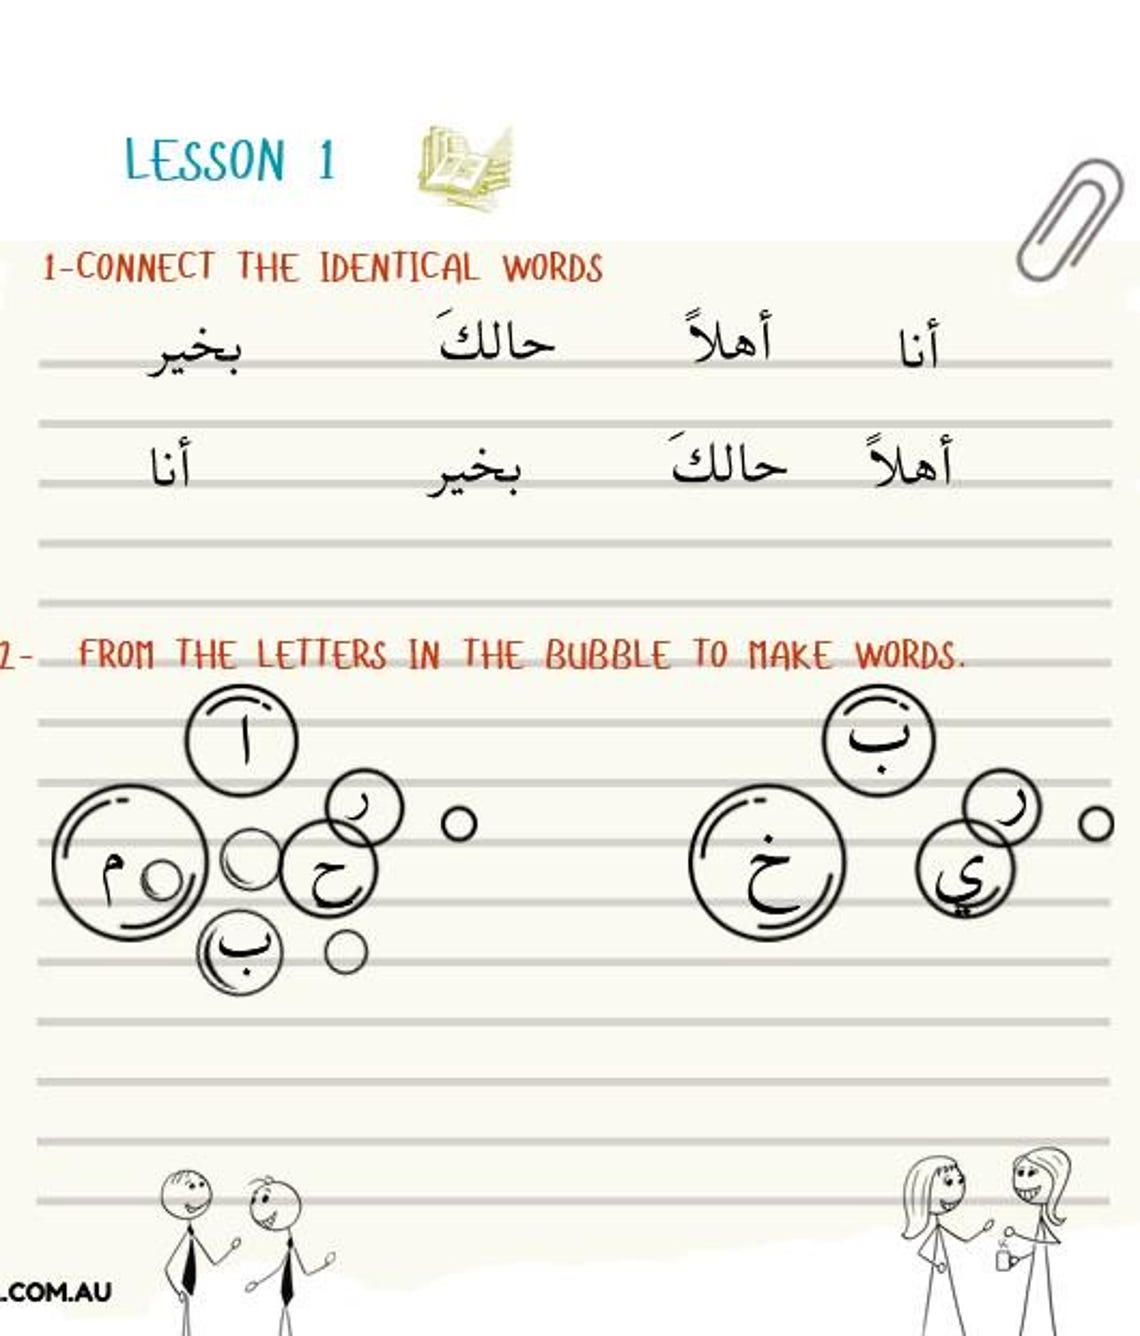 LESSON 1
1-CONNECT THE IDENTICAL WORDS
أنا أهلاً حالكَ بخير
أهلاً حالكَ بخير أنا
2- FROM THE LETTERS IN THE BUBBLE TO MAKE WORDS.
ا ب
ر ر
م ح خ ي
ب
.COM.AU